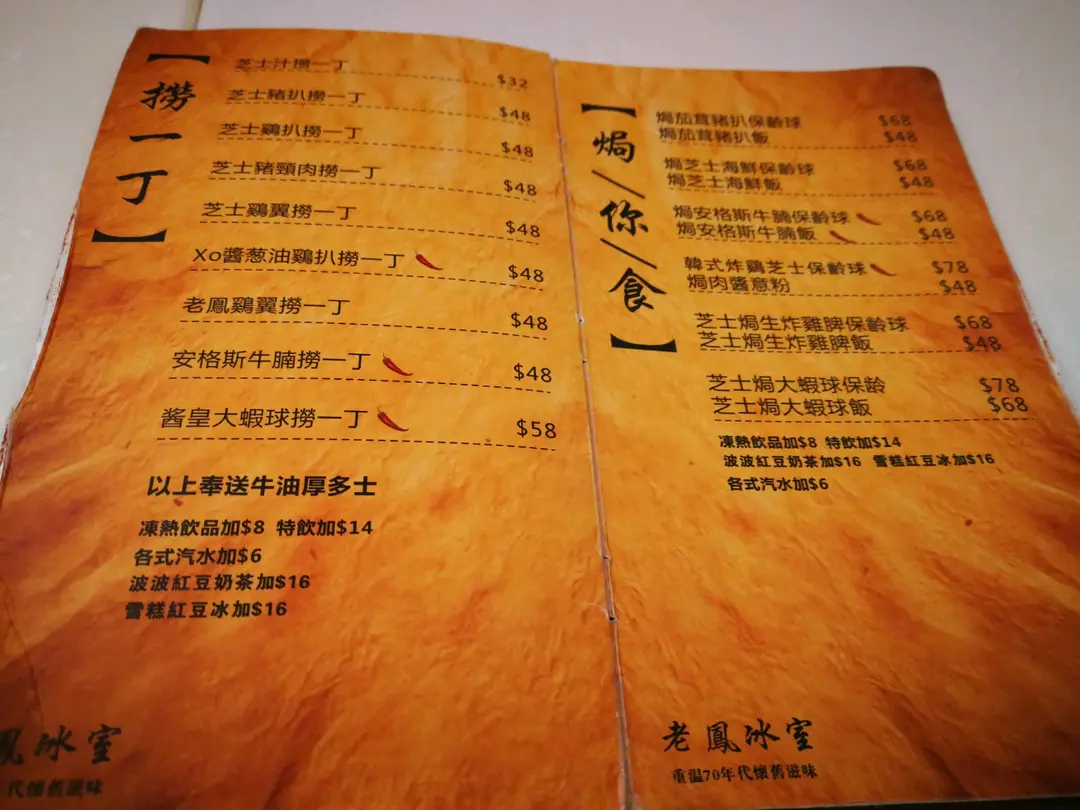 【撈一丁】
芝士汁撈一丁 $32
芝士豬扒撈一丁 $48
芝士鷄扒撈一丁 $48
芝士豬頸肉撈一丁 $48
芝士鷄翼撈一丁 $48
Xo醬葱油鷄扒撈一丁 $48
老鳳鷄翼撈一丁 $48
安格斯牛腩撈一丁 $48
醬皇大蝦球撈一丁 $58
以上奉送牛油厚多士
凍熱飲品加$8 特飲加$14
各式汽水加$6
波波紅豆奶茶加$16
雪糕紅豆冰加$16
鳳冰室
代懷舊滋味
【焗/你/食】
焗茄茸豬扒保齡球 $68
焗茄茸豬扒飯 $48
焗芝士海鮮保齡球 $68
焗芝士海鮮飯 $48
焗安格斯牛腩保齡球 $68
焗安格斯牛腩飯 $48
韓式炸鷄芝士保齡球 $78
焗肉醬意粉 $48
芝士焗生炸雞脾保齡球 $68
芝士焗生炸雞脾飯 $48
芝士焗大蝦球保齡 $78
芝士焗大蝦球飯 $68
凍熱飲品加$8 特飲加$14
波波紅豆奶茶加$16 雪糕紅豆冰加$16
各式汽水加$6
老鳳冰室
重温70年代懷舊滋味